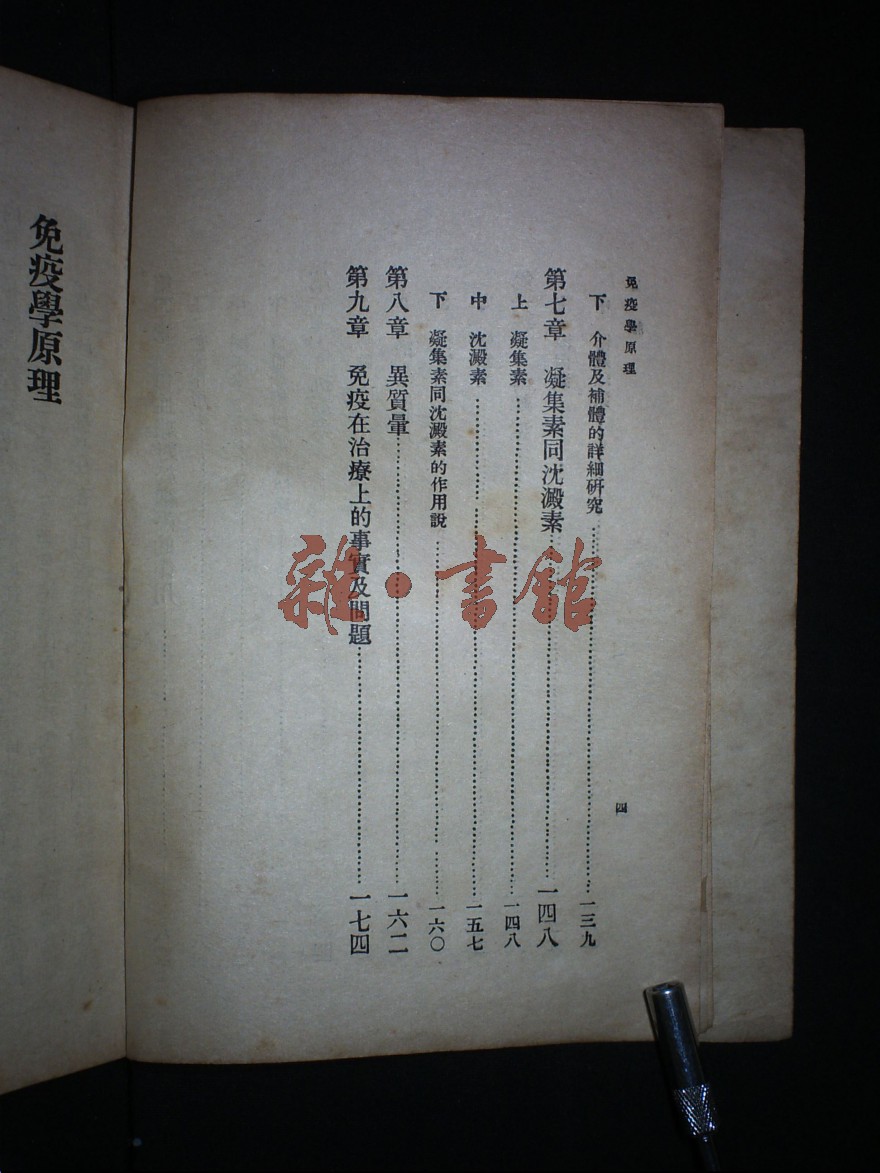 免疫學原理
下 介體及補體的詳細研究 一三九
第七章 凝集素同沈澱素 一四八
上 凝集素 一四八
中 沈澱素 一五七
下 凝集素同沈澱素的作用說 一六〇
第八章 異質暈 一六二
第九章 免疫在治療上的事實及問題 一七四
四
免疫學原理
雜·書館